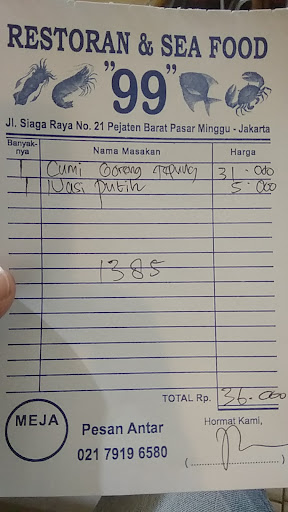 RESTORAN & SEA FOOD
"99"
Jl. Siaga Raya No. 21 Pejaten Barat Pasar Minggu - Jakarta
Banyak-nya Nama Masakan Harga
1 Cumi Goreng Tepung 31.000
1 Nasi putih 5.000
1385
TOTAL Rp. 36.000
MEJA
Pesan Antar
021 7919 6580
Hormat Kami,
(........................)